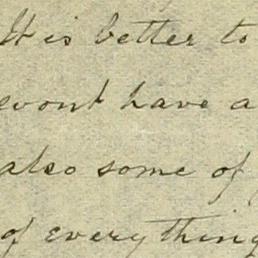 It is better to
wont have a
also some of
of everything